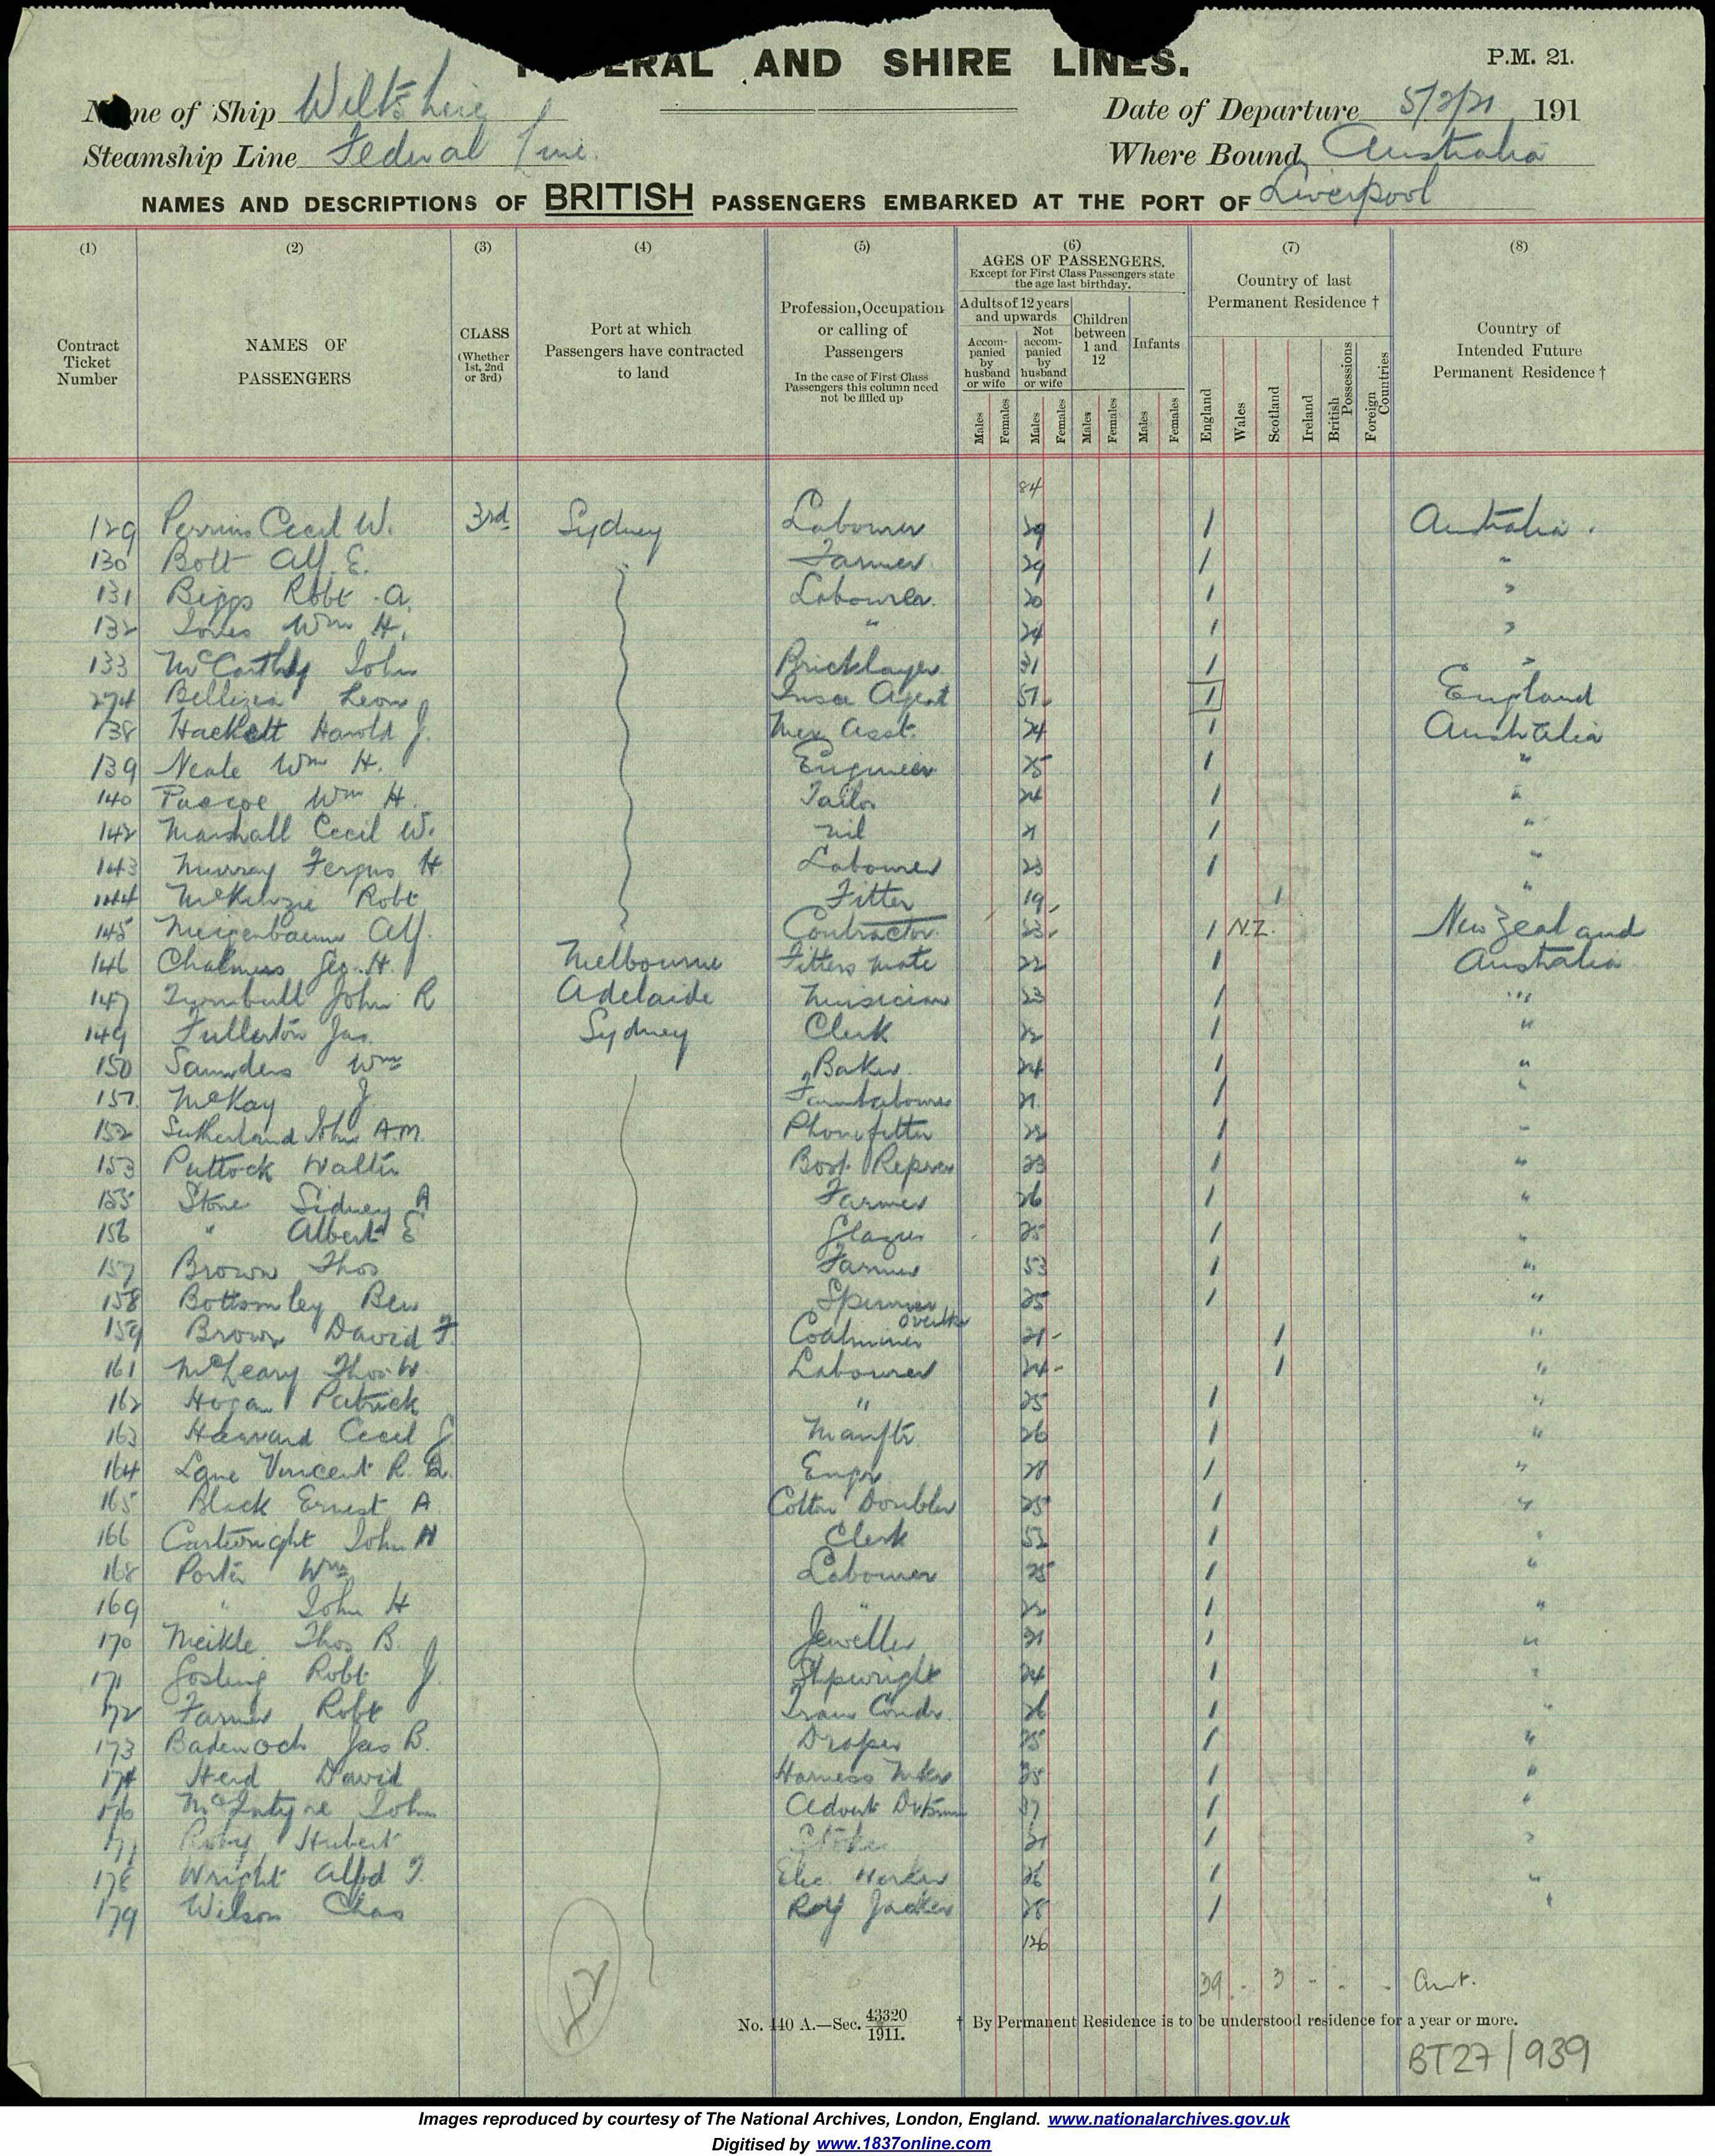 AND SHIRE LINES.
P.M. 21.
Name of Ship Wiltshire
Date of Departure 5/2/21 191
Steamship Line Federal Line.
Where Bound Australia
NAMES AND DESCRIPTIONS OF BRITISH PASSENGERS EMBARKED AT THE PORT OF Liverpool
(1) (2) (3) (4) (5) (6) (7) (8)
Contract Ticket Number
NAMES OF PASSENGERS
CLASS (Whether 1st, 2nd or 3rd)
Port at which Passengers have contracted to land
Profession, Occupation or calling of Passengers
In the case of First Class Passengers this column need not be filled up
AGES OF PASSENGERS.
Except for First Class Passengers state the age last birthday.
Adults of 12 years and upwards
Accompanied by husband or wife
Not accompanied by husband or wife
Children between 1 and 12
Infants
Males Females Males Females Males Females Males Females
Country of last Permanent Residence †
England Wales Scotland Ireland British Possessions Foreign Countries
Country of Intended Future Permanent Residence †
84
129 Perrins Cecil W. 3rd Sydney Labourer 29 1 Australia.
130 Bott Alf. E. Farmer 29 1 "
131 Biggs Robt. A. Labourer 20 1 "
132 Jones Wm H. " 24 1 "
133 McCarthy John Bricklayer 31 1 "
274 Leon Insce Agent 51 1 England
138 Hackett Harold J. Asst. 24 1 Australia
139 Neale Wm H. Engineer 25 1 "
140 Pascoe Wm H. Tailor 24 1 "
142 Marshall Cecil W. nil 21 1 "
143 Murray Fergus H Labourer 23 1 "
144 McKenzie Robt Fitter 19 1 "
145 Alf. Contractor 23 1 N.Z. New Zealand
146 Chalmers Geo. H. Melbourne Fitters Mate 22 1 Australia
147 Turnbull John R Adelaide Musician 23 1 "
149 Fullerton Jas. Sydney Clerk 22 1 "
150 Saunders Wm Baker 24 1 "
151 McKay J Farm labourer 21 1 "
152 Sutherland John A.M. Phone fitter 22 1 "
153 Puttock Walter Boot Reprer 23 1 "
155 Stone Sidney A Farmer 26 1 "
156 " Albert E 25 1 "
157 Brown Thos Farmer 53 1 "
158 Bottomley Ben 25 1 "
159 Brown David F. Coalminer 21 1 "
161 McLeary Thos W. Labourer 24 1 "
162 Hogan Patrick " 25 1 "
163 Cecil J. Manftr. 26 1 "
164 Lane Vincent R. Engr 28 1 "
165 Black Ernest A Cotton Doubler 25 1 "
166 Cartwright John H Clerk 52 1 "
168 Porter Wm Labourer 25 1 "
169 " John H " 22 1 "
170 Meikle Thos B. Jeweller 21 1 "
171 Gosling Robt J. Shpwright 24 1 "
172 Farmer Robt Tram Condr. 26 1 "
173 Badenoch Jas B. Draper 25 1 "
174 Herd David Harness Mkr 25 1 "
176 McIntyre John Advert 37 1 "
177 Roby Hubert 21 1 "
178 Wright Alfd T. Elec. Worker 26 1 "
179 Wilson Chas 28 1 "
126
42
39 - 3 - - - Aust.
No. 140 A.—Sec. 43320/1911.
† By Permanent Residence is to be understood residence for a year or more.
BT27/939
Images reproduced by courtesy of The National Archives, London, England. www.nationalarchives.gov.uk
Digitised by www.1837online.com